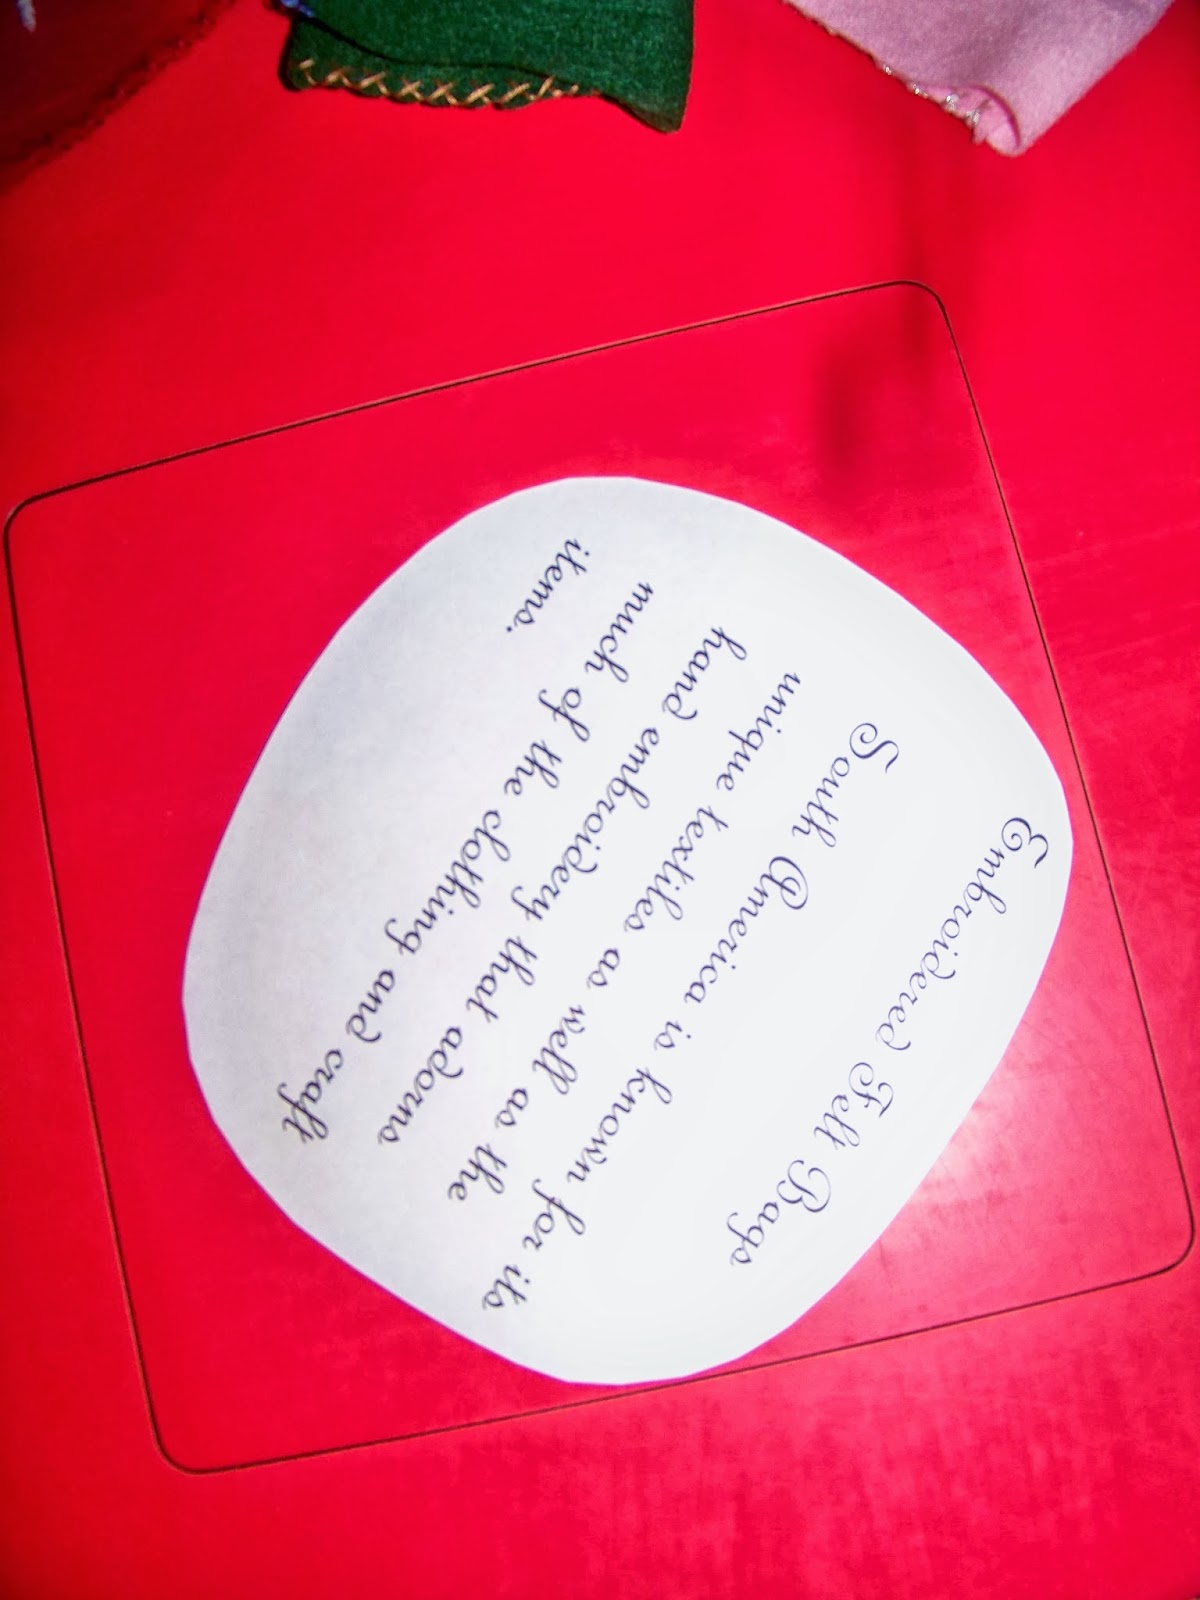 Embroidered Felt Bags
South America is known for its
unique textiles as well as the
hand embroidery that adorns
much of the clothing and craft
items.